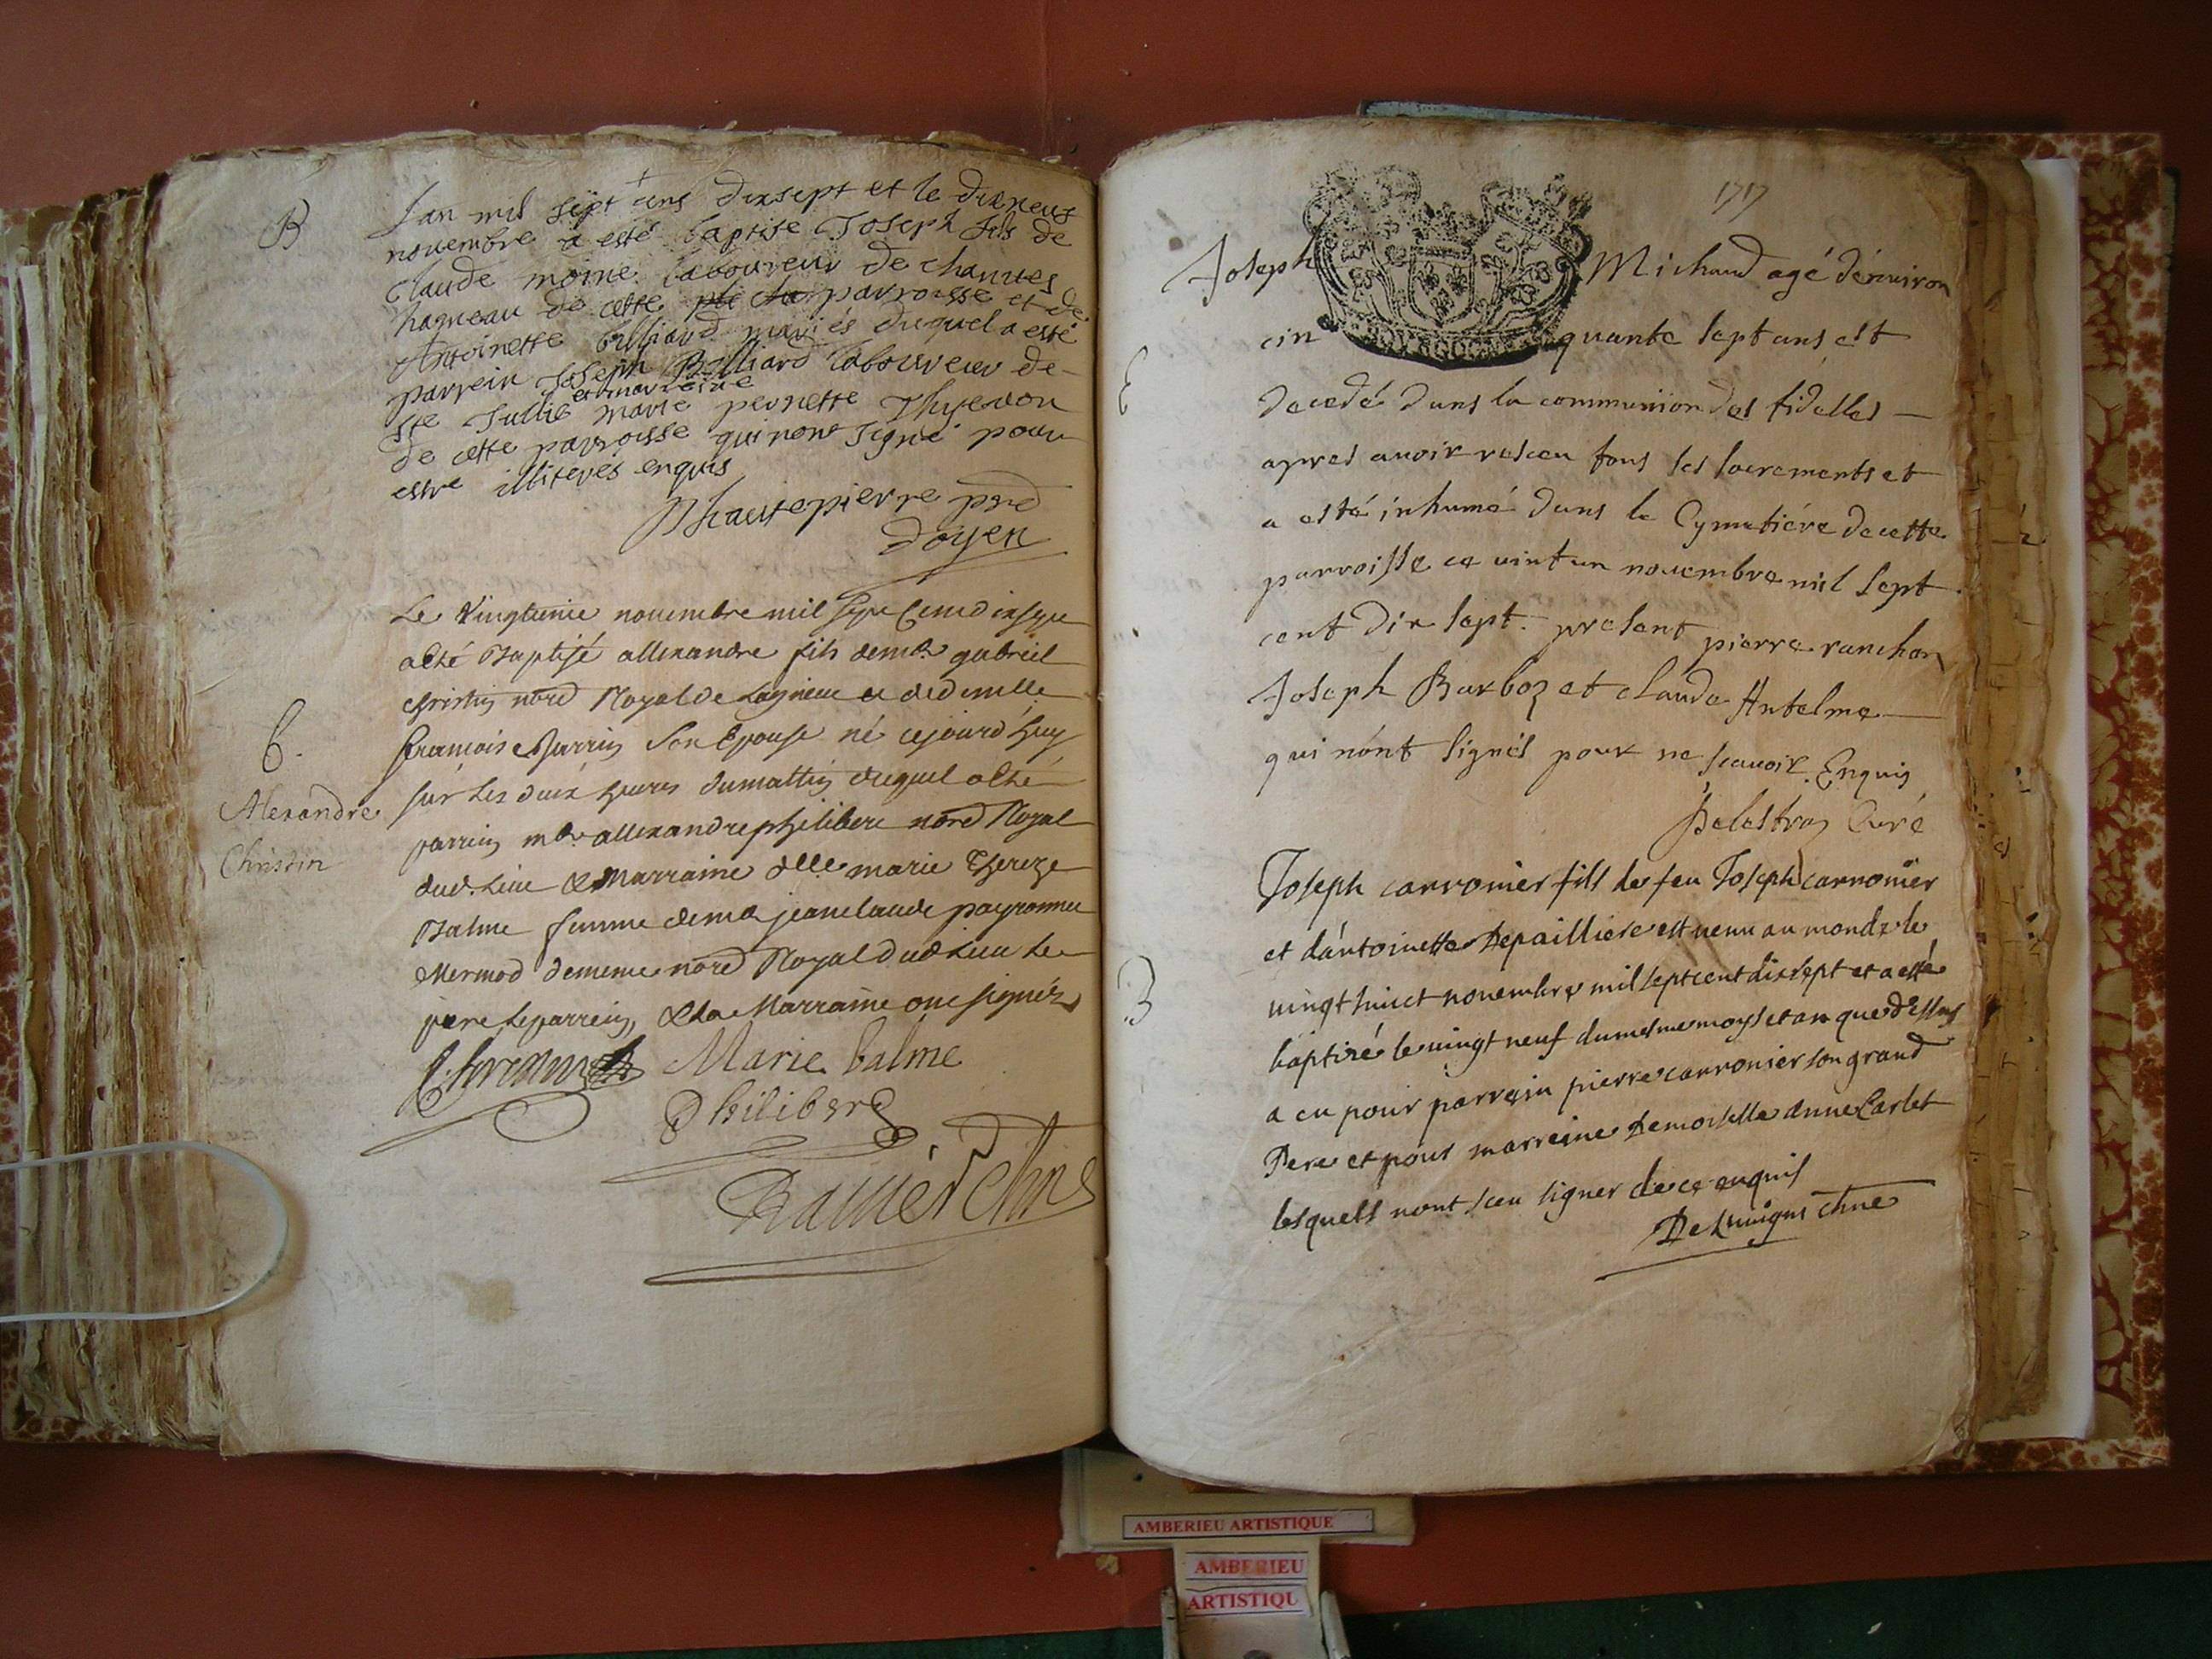 B
Lan mil sept cens dixsept et le dixneuf
novembre a esté baptise Joseph fils de
Claude moine laboureur de chanves
hagneau de cette parroisse et de
Antoinette billiard mariés duquel a esté
parrein Joseph Billiard laboureur de
ste Jullie et marreine marie pernette Thyevon
de cette parroisse qui nont signé pour
estre illiterés enquis
Dhautepierre
Doyen
Le vingtunie novembre mil sept cent dixsept
a esté Baptisé allexandre fils de me gabriel
christin nore Royal de Lagnieu et de demelle
francoise Burrin son Epouse né cejourdhuy
6.
Alexandre
Christin
sur les deux heures du mattin duquel a esté
parrin me allexandre philibert nore Royal
dud. Lieu & Marraine delle marie Thereze
Balme femme de me jean claude payronnet
Mermod de meme nore Royal dud Lieu Le
pere Le parrein & La Marraine ont signés
Marie balme
Philibert
Ravier chne
1717
Joseph Michaud agé dénviron
cin quante sept ans est
E
decedé dans la communion des fidelles
apres avoir resceu tous les sacrements et
a esté inhumé dans le Cymetiére de cette
parroisse ce vint un novembre mil sept
cent dix sept. present pierre ranchon
Joseph Barboz et claude Antelme
qui nónt signés pour ne scavoir. Enquis
Curé
Joseph carronier fils de feu Joseph carronier
et dántoinette Depailliere est venu au monde le
B
vingt huict novembre mil sept cent dix sept et a esté
baptizé le vingt neuf du mesme moys et an que dessus
a eu pour parrein pierre carronier son grand
Pere et pour marreine Demoiselle Anne Carlet
lesquels nont sceu signer de ce enquis
chne
AMBERIEU ARTISTIQUE
AMBERIEU
ARTISTIQU